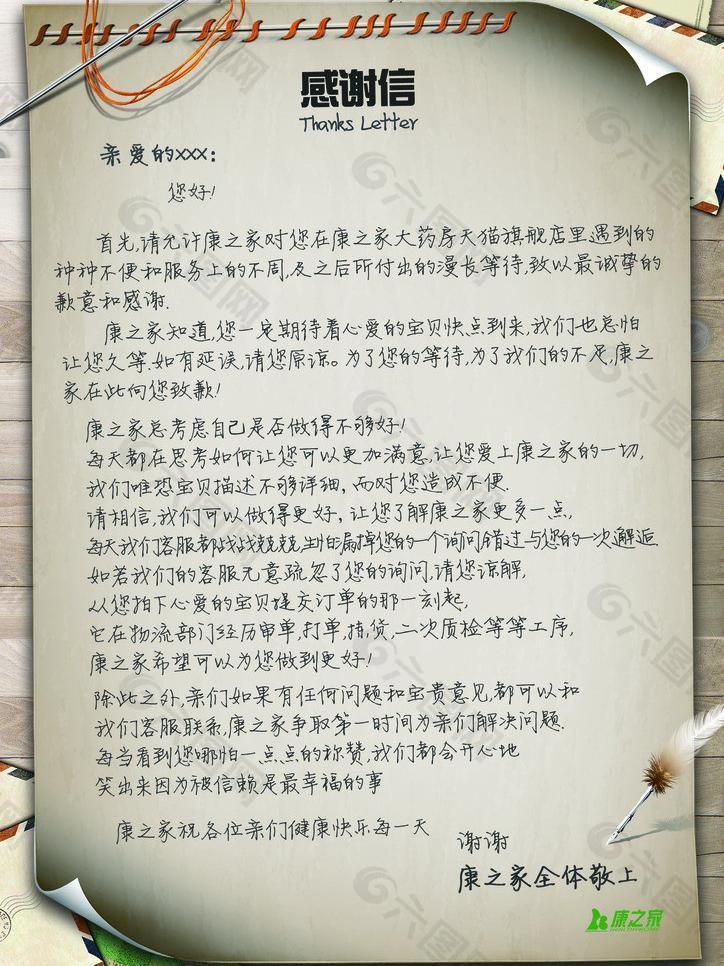 感谢信
Thanks Letter
亲爱的xxx：
您好！
首先,请允许康之家对您在康之家大药房天猫旗舰店里遇到的
种种不便和服务上的不周,及之后所付出的漫长等待,致以最诚挚的
歉意和感谢.
康之家知道,您一定期待着心爱的宝贝快点到来,我们也总怕
让您久等.如有延误,请您原谅。为了您的等待,为了我们的不足,康之
家在此向您致歉！
康之家总考虑自己是否做得不够好！
每天都在思考如何让您可以更加满意,让您爱上康之家的一切,
我们唯恐宝贝描述不够详细,而对您造成不便.
请相信,我们可以做得更好,让您了解康之家更多一点,
每天我们客服都战战兢兢,生怕漏掉您的一个询问错过与您的一次邂逅
如若我们的客服无意疏忽了您的询问,请您谅解,
从您拍下心爱的宝贝提交订单的那一刻起,
它在物流部门经历审单,打单,拍,货,二次质检等等工序,
康之家希望可以为您做到更好！
除此之外,亲们如果有任何问题和宝贵意见,都可以和
我们客服联系,康之家争取第一时间为亲们解决问题.
每当看到您哪怕一点点的称赞,我们都会开心地
笑出来因为被信赖是最幸福的事
康之家祝各位亲们健康快乐每一天
谢谢
康之家全体敬上
康之家
六图网